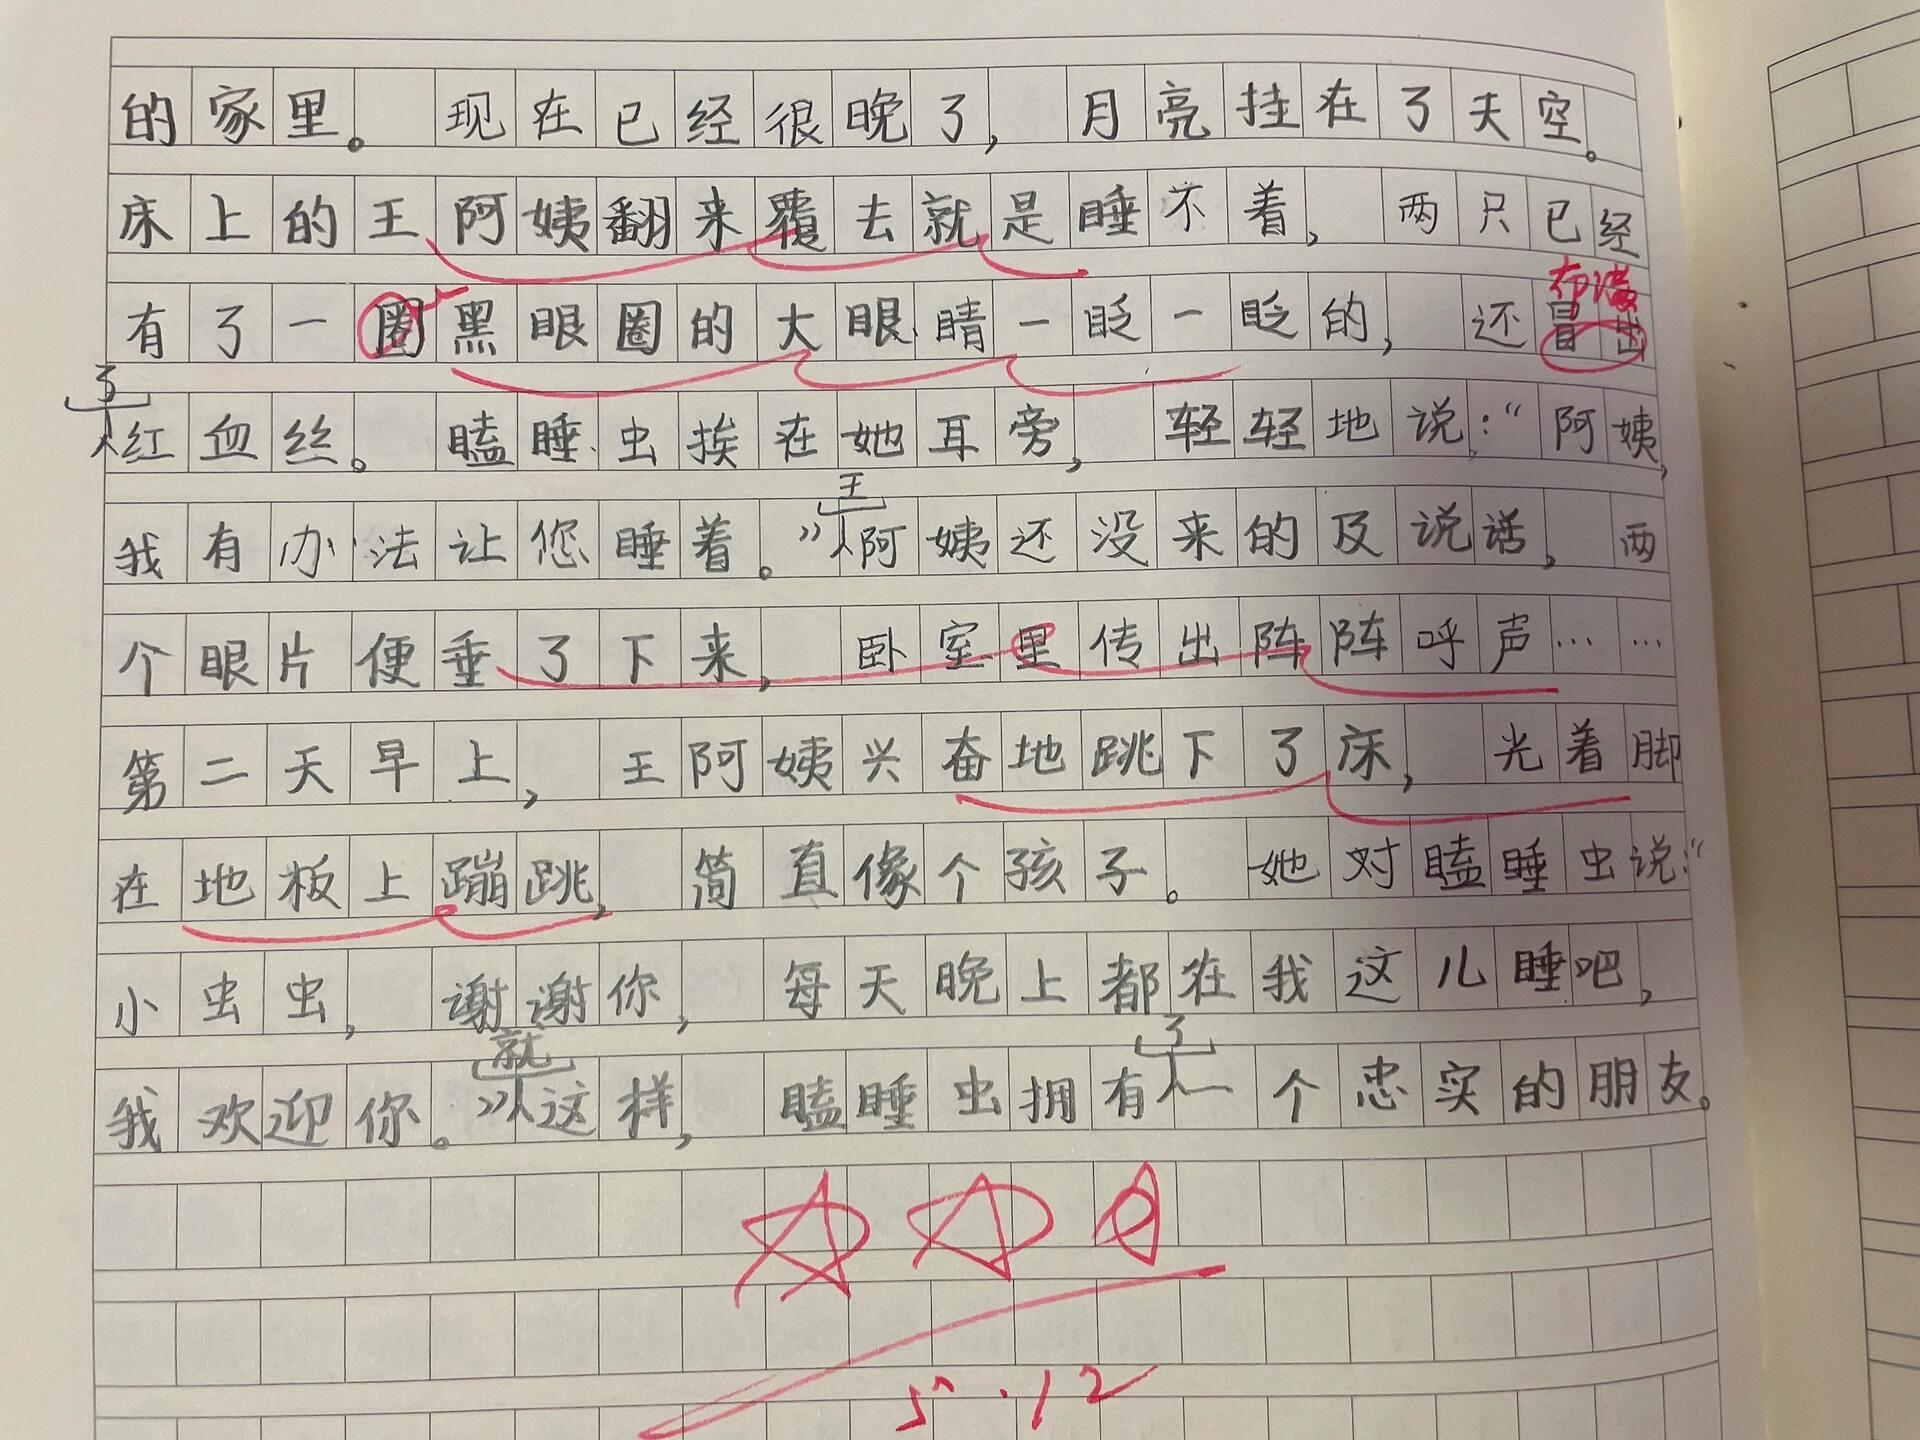 的家里。现在已经很晚了，月亮挂在了天空。
床上的王阿姨翻来覆去就是睡不着，两只已经
布满
有了一圈黑眼圈的大眼睛一眨一眨的，还冒出
了
红血丝。瞌睡虫挨在她耳旁，轻轻地说：“阿姨，
王
我有办法让您睡着。”阿姨还没来的及说话，两
个眼片便垂了下来，卧室里传出阵阵呼声……
第二天早上，王阿姨兴奋地跳下了床，光着脚
在地板上蹦跳，简直像个孩子。她对瞌睡虫说：“
小虫虫，谢谢你，每天晚上都在我这儿睡吧，
就 了
我欢迎你。”这样，瞌睡虫拥有一个忠实的朋友。
5.12